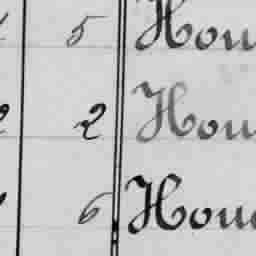 5 Hou
2 Hou
6 Hou